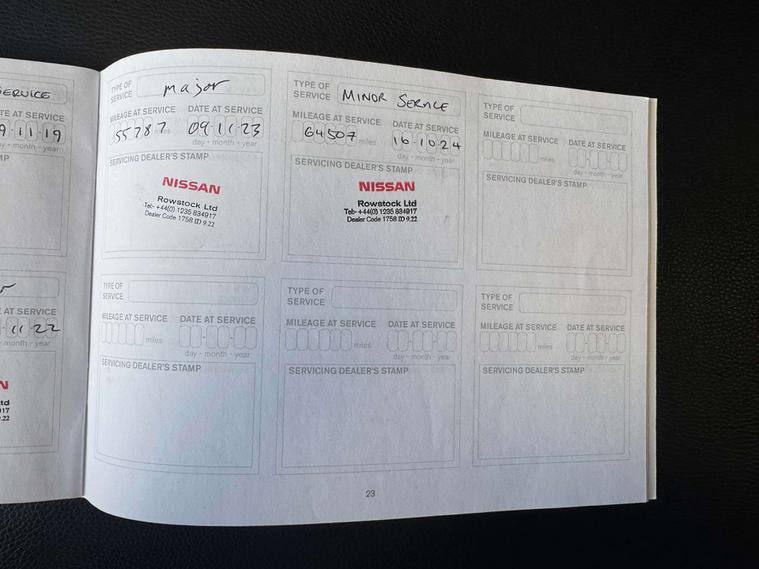 SERVICE
9·11·19
MP
11·22
N
td
917
9.22
TYPE OF SERVICE major
MILEAGE AT SERVICE DATE AT SERVICE
55787 miles 09·11·23
day - month - year
SERVICING DEALER'S STAMP
NISSAN
Rowstock Ltd
Tel:- +44(0) 1235 834917
Dealer Code 1758 ID 9.22
TYPE OF SERVICE MINOR SERVICE
MILEAGE AT SERVICE DATE AT SERVICE
64507 miles 16·10·24
day - month - year
SERVICING DEALER'S STAMP
NISSAN
Rowstock Ltd
Tel:- +44(0) 1235 834917
Dealer Code 1758 ID 9.22
TYPE OF SERVICE
MILEAGE AT SERVICE DATE AT SERVICE
miles
day - month - year
SERVICING DEALER'S STAMP
TYPE OF SERVICE
MILEAGE AT SERVICE DATE AT SERVICE
miles
day - month - year
SERVICING DEALER'S STAMP
TYPE OF SERVICE
MILEAGE AT SERVICE DATE AT SERVICE
miles
day - month - year
SERVICING DEALER'S STAMP
TYPE OF SERVICE
MILEAGE AT SERVICE DATE AT SERVICE
miles
day - month - year
SERVICING DEALER'S STAMP
23